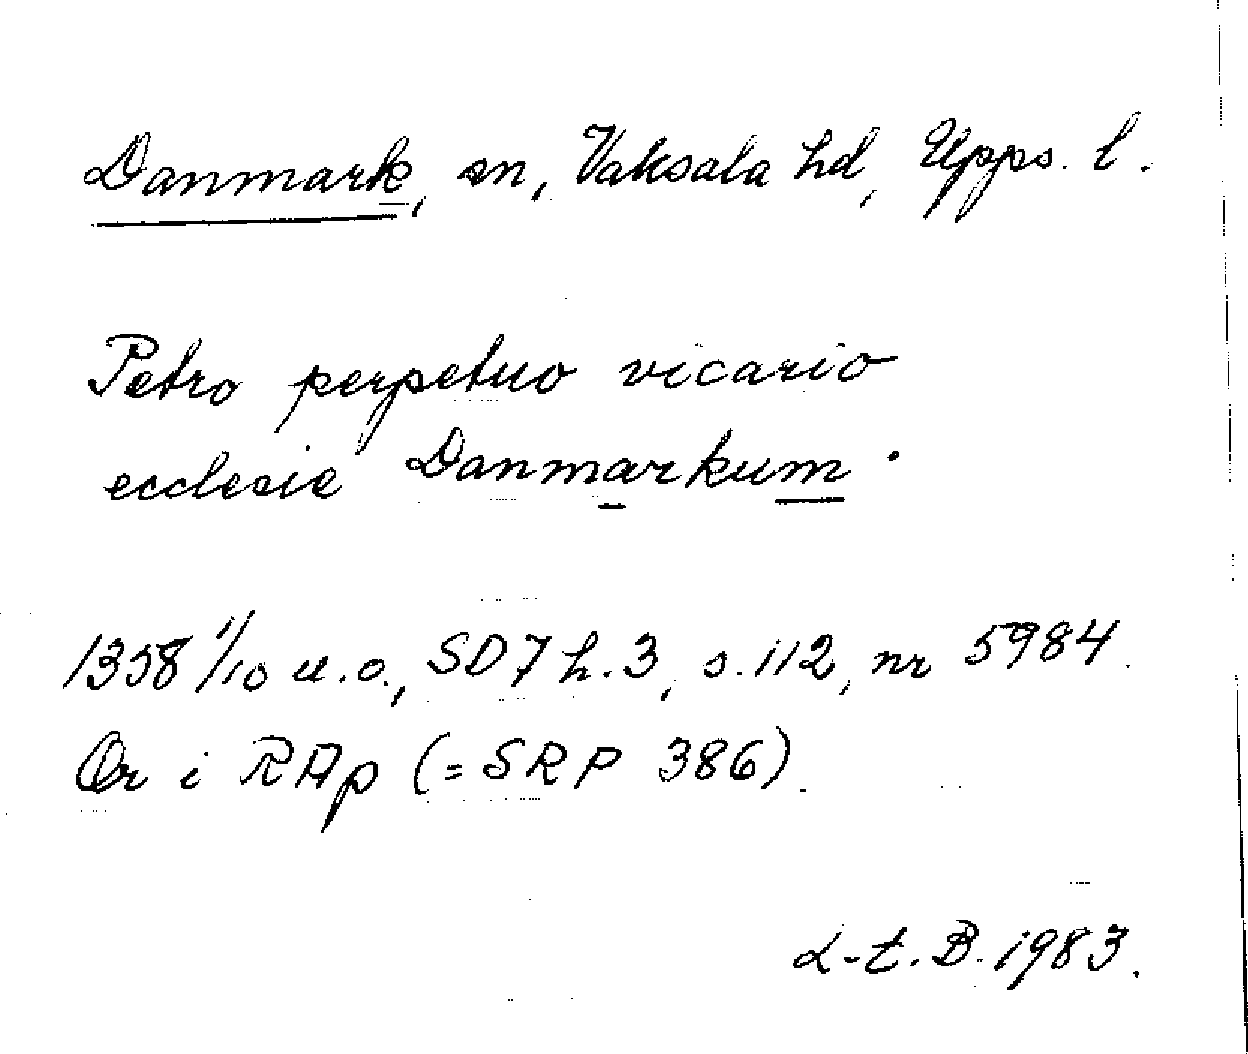 Danmark, sn, Vaksala hd, Upps. l.
Petro perpetuo vicario
ecclesie Danmarkum.
1358 1/10 u.o., SD 7 h. 3, s. 112, nr 5984.
Or i RAp (= SRP 386).
L-E. B. 1983.